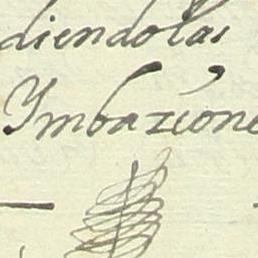 diendolas
Ymbazione